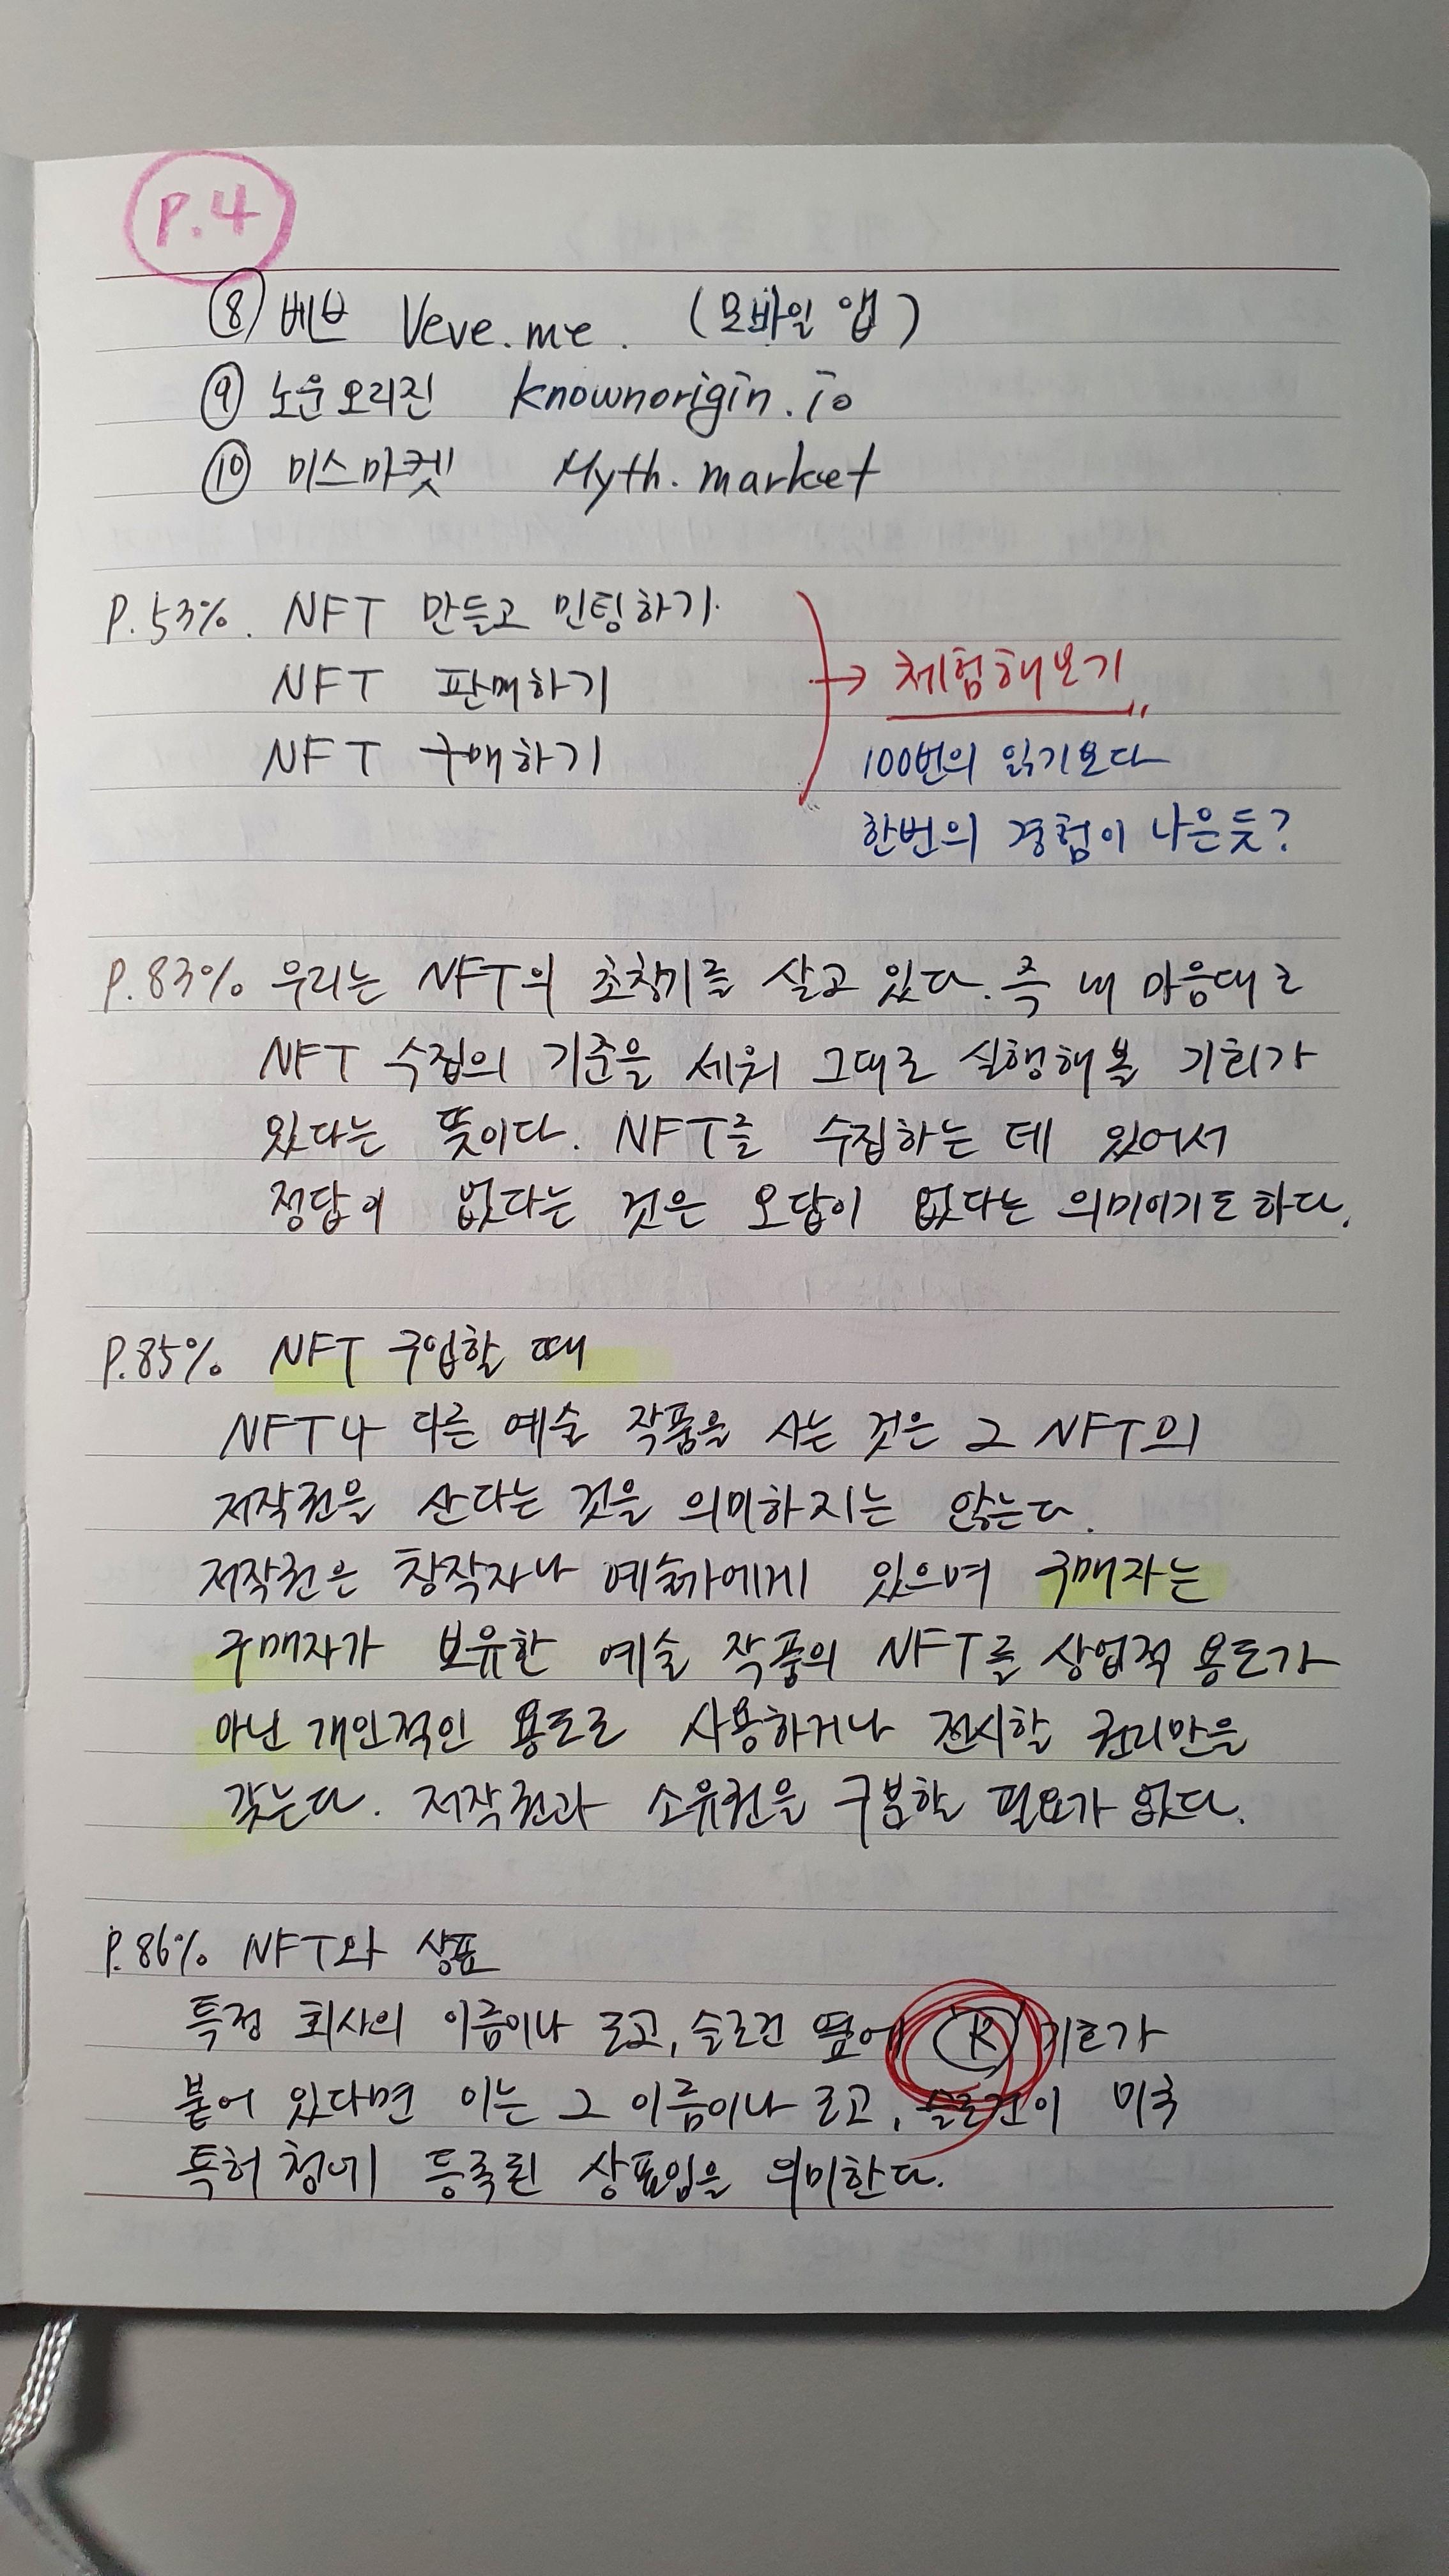 P.4
⑧ 베브 Veve.me. (모바일 앱)
⑨ 노운오리진 knownorigin.io
⑩ 미스마켓 Myth.market
P.53%. NFT 만들고 민팅하기.
NFT 판매하기 → 체험해보기
NFT 구매하기 100번의 읽기보다
한번의 경험이 나은듯?
P.83% 우리는 NFT의 초창기를 살고 있다. 즉 내 마음대로
NFT 수집의 기준을 세워 그대로 실행해볼 기회가
있다는 뜻이다. NFT를 수집하는 데 있어서
정답이 없다는 것은 오답이 없다는 의미이기도하다.
P.85% NFT 구입할 때
NFT나 다른 예술 작품을 사는 것은 그 NFT의
저작권을 산다는 것을 의미하지는 않는다.
저작권은 창작자나 예술가에게 있으며 구매자는
구매자가 보유한 예술 작품의 NFT를 상업적 용도가
아닌 개인적인 용도로 사용하거나 전시할 권리만을
갖는다. 저작권과 소유권을 구분할 필요가 없다.
P.86% NFT와 상표
특정 회사의 이름이나 로고, 슬로건 옆에 Ⓡ 기호가
붙어 있다면 이는 그 이름이나 로고, 슬로건이 미국
특허청에 등록된 상표임을 의미한다.